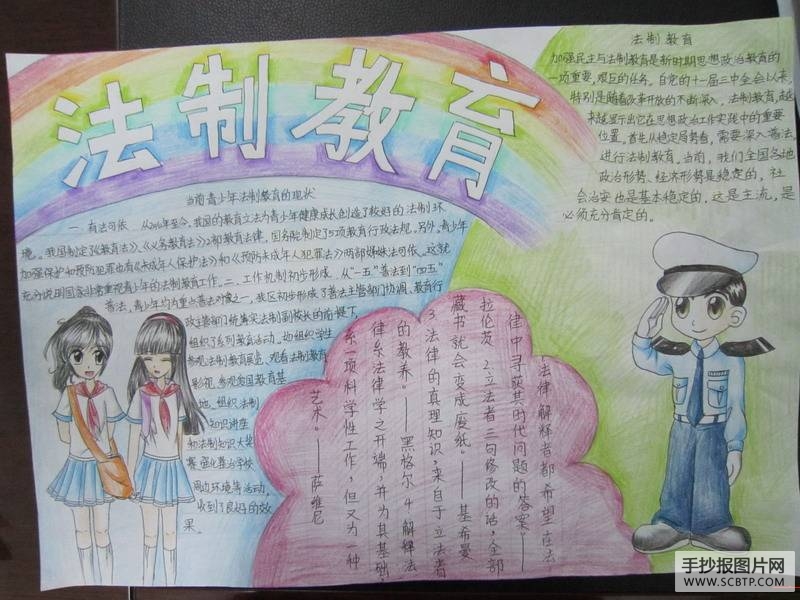 法制教育
法制教育
加强民主与法制教育是新时期思想政治教育的
一项重要,艰巨的任务。自党的十一届三中全会以来,
特别是随着改革开放的不断深入,法制教育,越
来越显示出它在思想政治工作实践中的重要
位置。首先从稳定局势看,需要深入普法,
进行法制教育。当前,我们全国各地
政治形势、经济形势是稳定的,社
会治安也是基本稳定的,这是主流,是
必须充分肯定的。
当前青少年法制教育的现状
一、有法可依 从2010年至今,我国的教育立法为青少年健康成长创造了较好的法制环
境。我国制定了《教育法》、《义务教育法》2部教育法律,国务院制定了5项教育行政法规。另外,青少年
加强保护和预防犯罪也有《未成年人保护法》和《预防未成年人犯罪法》两部姊妹法可依。这就
充分说明国家非常重视青少年的法制教育工作。二、工作机制初步形成。从“一五”普法到“四五”
普法,青少年均为重点普法对象之一,我区初步形成了普法主管部门协调、教育行
政主管部门统筹实法制副校长的前提下,
组织了系列教育活动。如组织学生
参观法制教育展览、观看法制教育
影视、参观爱国教育基
地、组织法制
知识讲座
和法制知识大奖
赛、强化整治学校
周边环境等活动,
收到了良好的效
果。
法律解释者都希望在法
律中寻获其时代问题的答案。——
拉伦茨 2立法者三句修改的话,全部
藏书就会变成废纸 ——基希曼
3法律的真理知识,来自于立法者
的教养。——黑格尔 4解释法
律系法律学之开端,并为其基础,
系一项科学性工作,但又为一种
艺术。——萨维尼
手抄报图片网
WWW.SCBTP.COM